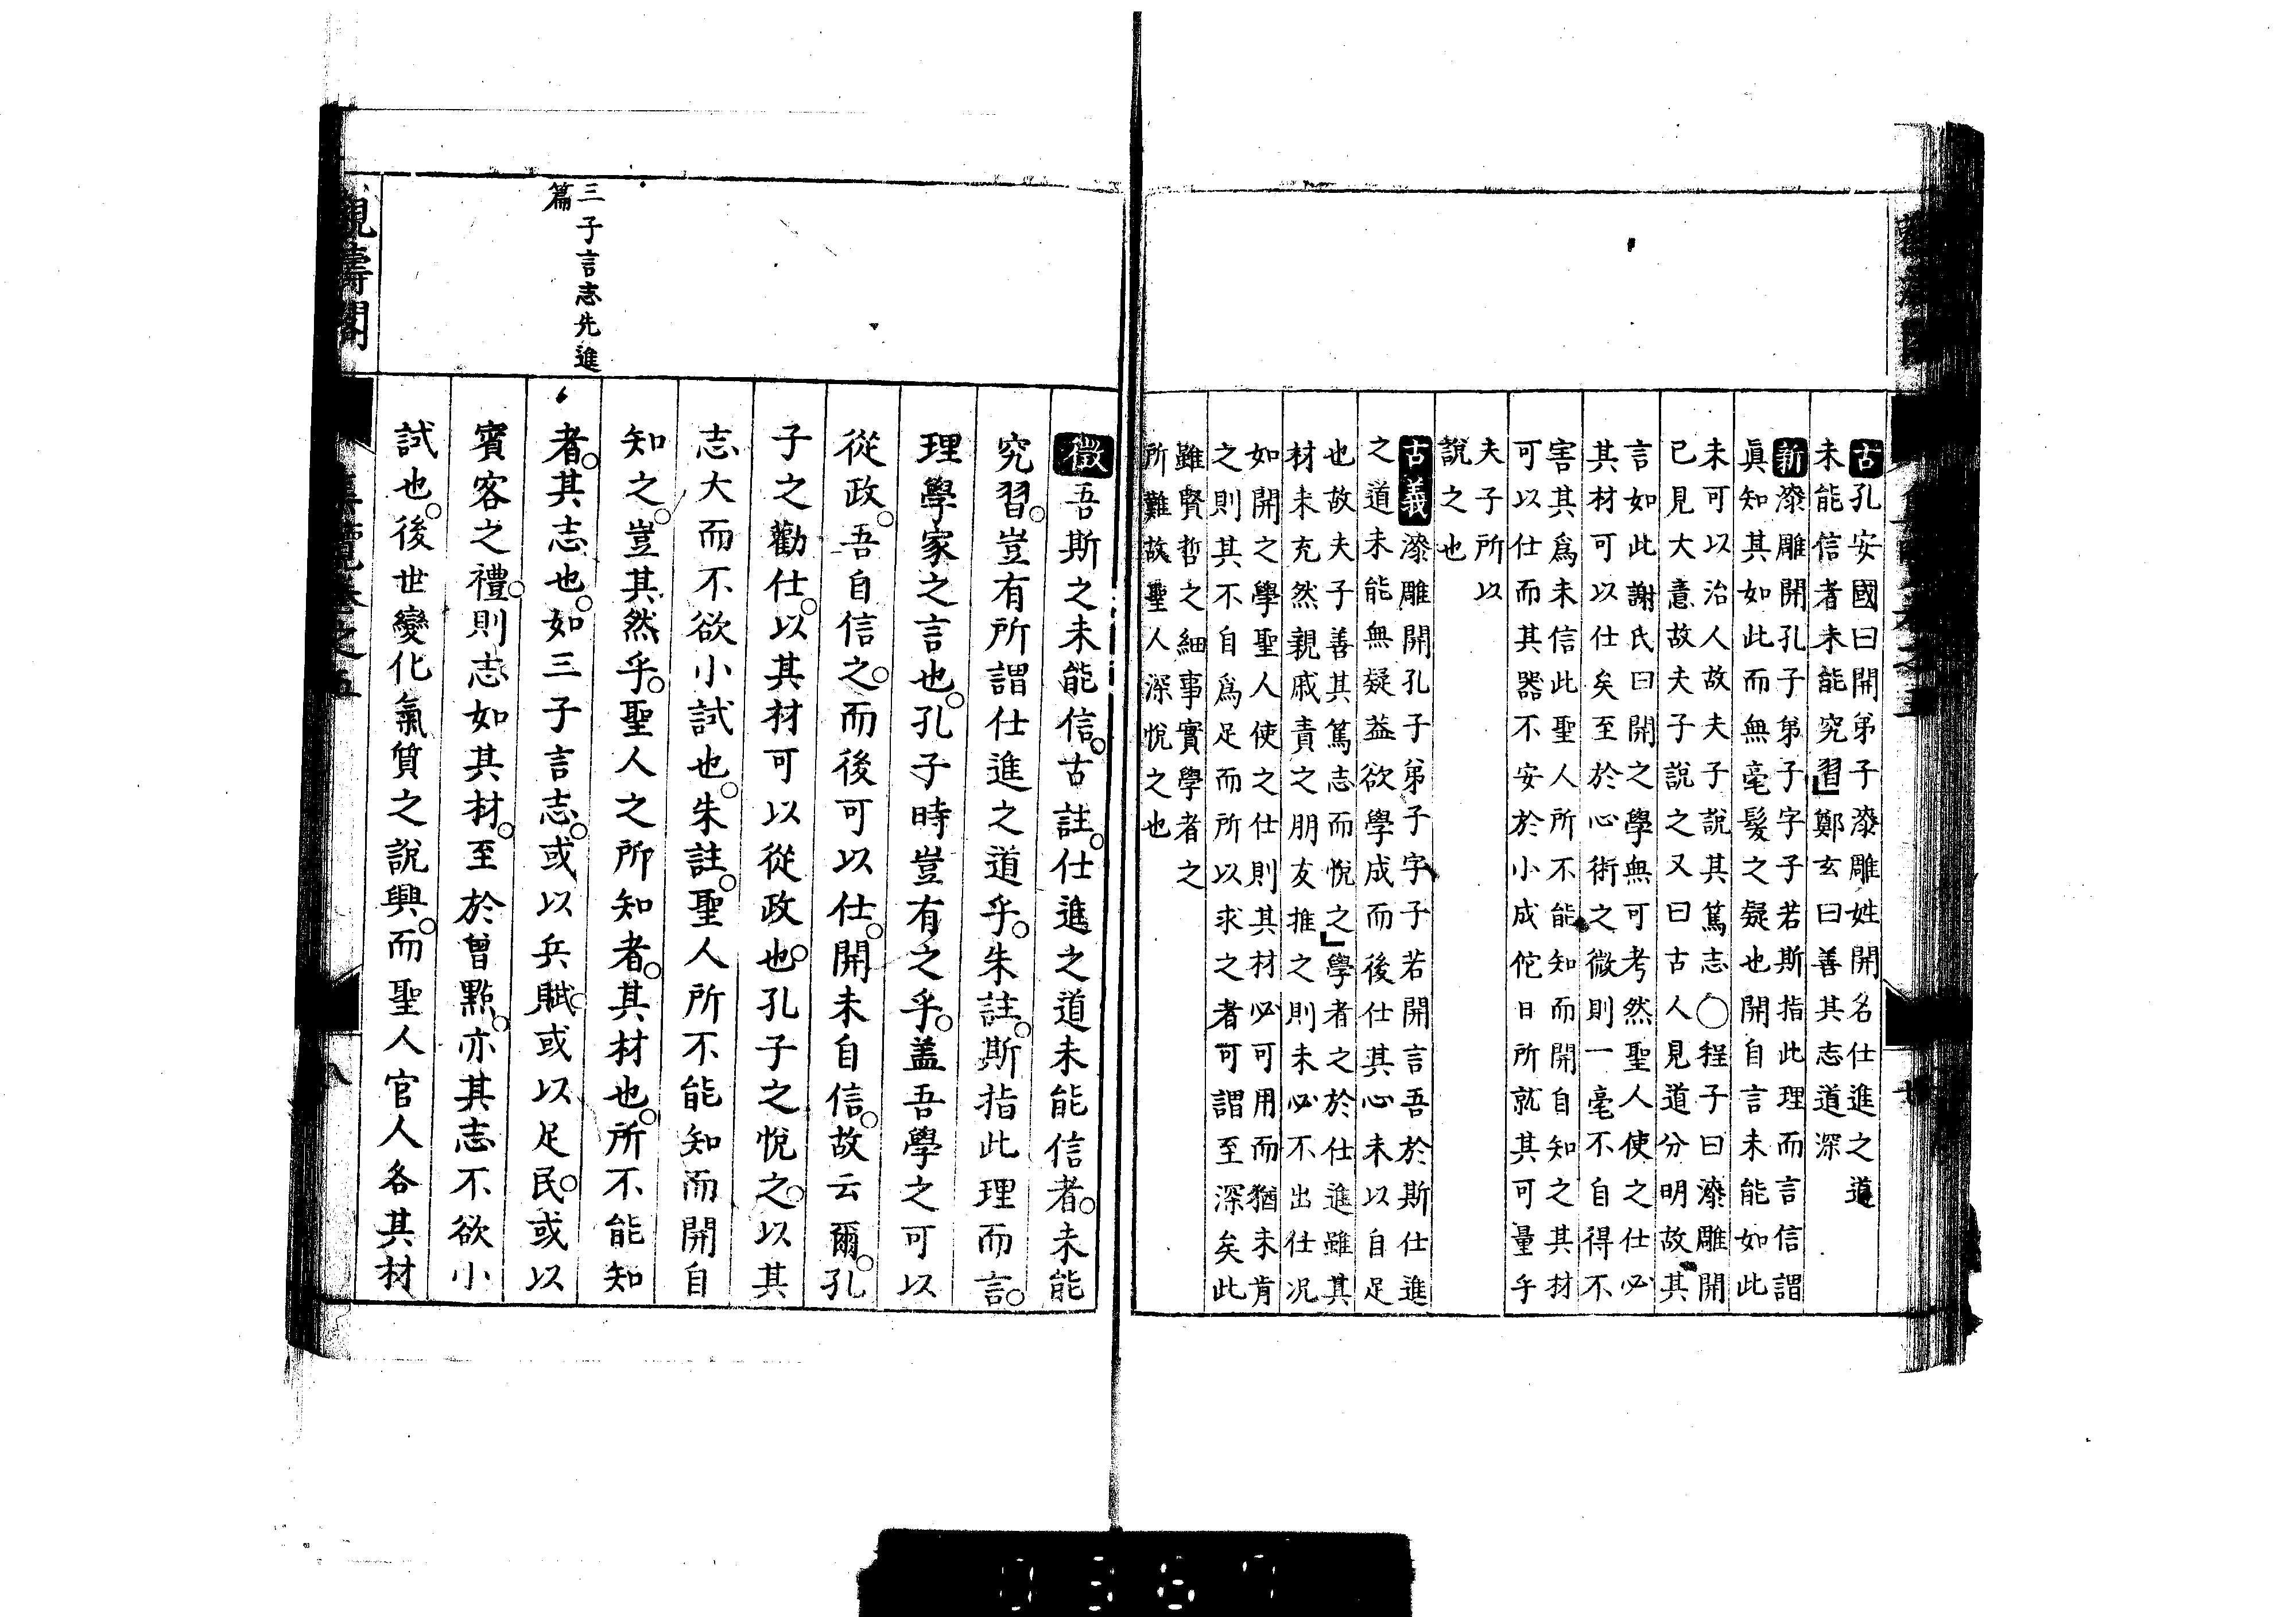 古孔安國曰開弟子漆雕姓開名仕進之道
未能信者未能究習鄭玄曰善其志道深
新漆雕開孔子弟子字子若斯指此理而言信謂
眞知其如此而無毫髮之疑也開自言未能如此
未可以治人故夫子說其篤志○程子曰漆雕開
已見大意故夫子說之又曰古人見道分明故其
言如此謝氏曰開之學無可考然聖人使之仕必
其材可以仕矣至於心術之微則一毫不自得不
害其爲未信此聖人所不能知而開自知之其材
可以仕而其器不安於小成佗日所就其可量乎
夫子所以
說之也
古義漆雕開孔子弟子字子若開言吾於斯仕進
之道未能無疑益欲學成而後仕其心未以自足
也故夫子善其篤志而悅之學者之於仕進雖其
材未充然親戚責之朋友推之則未必不出仕况
如開之學聖人使之仕則其材必可用而猶未肯
之則其不自爲足而所以求之者可謂至深矣此
雖賢哲之細事實學者之
所難故聖人深悅之也
徵吾斯之未能信古註仕進之道未能信者未能
究習豈有所謂仕進之道乎朱註斯指此理而言
理學家之言也孔子時豈有之乎盖吾學之可以
從政吾自信之而後可以仕開未自信故云爾孔
子之勸仕以其材可以從政也孔子之悅之以其
志大而不欲小試也朱註聖人所不能知而開自
知之豈其然乎聖人之所知者其材也所不能知
三子言志先進
篇
者其志也如三子言志或以兵賦或以足民或以
賓客之禮則志如其材至於曾點亦其志不欲小
試也後世變化氣質之說興而聖人官人各其材
觀濤閣
覽卷之五
八